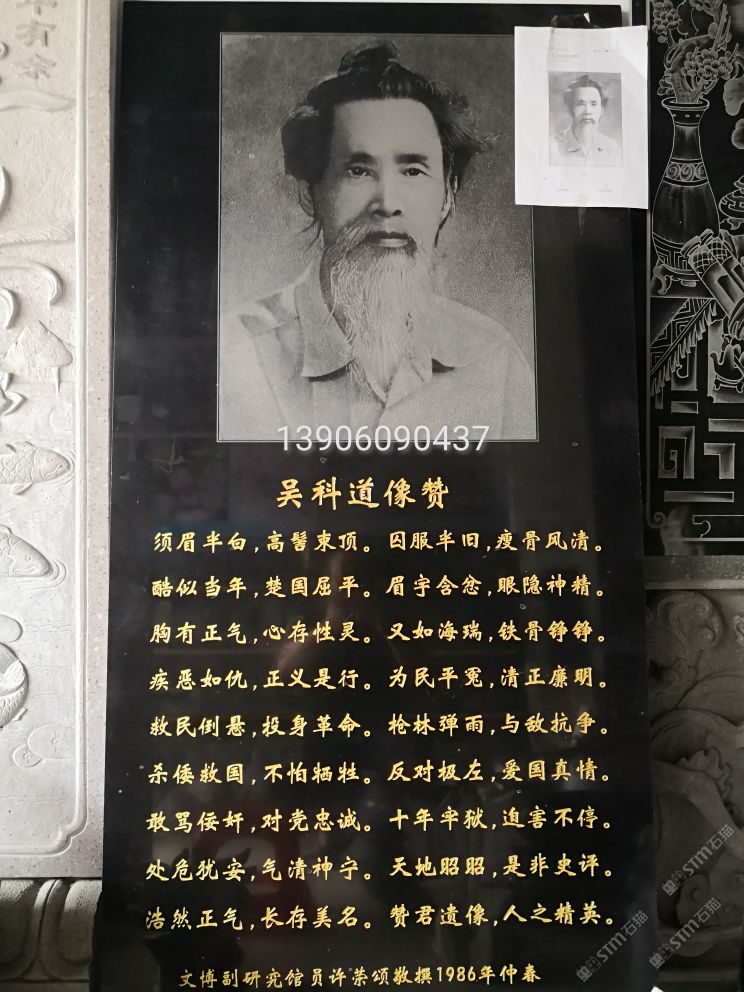 13906090437
吴科道像赞
须眉半白,高髻束顶。囚服半旧,瘦骨风清。
酷似当年,楚国屈平。眉宇含忿,眼隐神精。
胸有正气,心存性灵。又如海瑞,铁骨铮铮。
疾恶如仇,正义是行。为民平冤,清正廉明。
救民倒悬,投身革命。枪林弹雨,与敌抗争。
杀倭救国,不怕牺牲。反对极左,爱国真情。
敢骂佞奸,对党忠诚。十年牢狱,迫害不停。
处危犹安,气清神宁。天地昭昭,是非史评。
浩然正气,长存美名。赞君遗像,人之精英。
文博副研究馆员许荣颂敬撰1986年仲春
STM石猫
STM石猫